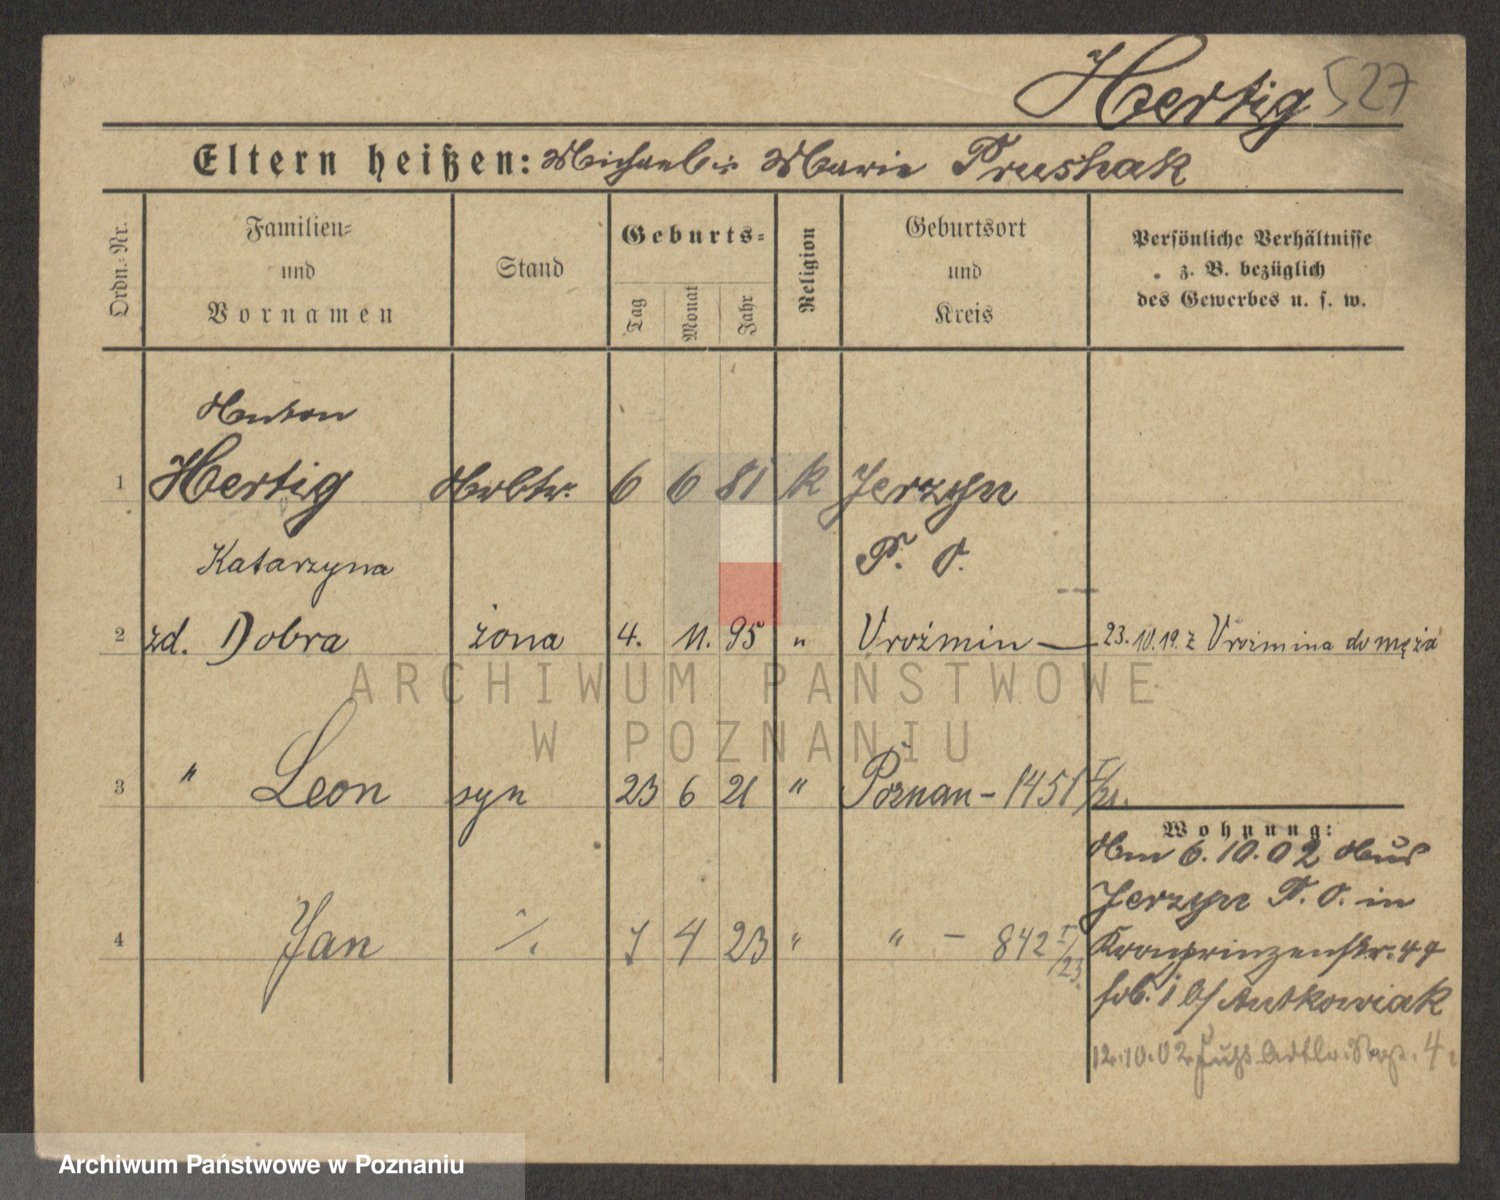 Hertig 527
Eltern heißen: Michael Marie Prushak
Ordn.-Nr.
Familien- und Vornamen
Stand
Geburts-
Tag
Monat
Jahr
Religion
Geburtsort und Kreis
Persönliche Verhältnisse
z. B. bezüglich
des Gewerbes u. s. w.
Anton
1 Hertig Arbtr. 6 6 81 k Jerzyn
P. O.
Katarzyna
2 zd. Dobra żona 4. 11. 95 " Uroźmin — 23.10.19. z Uroźmina do męża
3 " Leon syn 23 6 21 " Poznan - 1451 I/21.
4 Jan ./. 7 4 23 " " - 842 I/23.
Wohnung:
Am 6.10.02 aus
Jerzyn P. O. in
Kronprinzenstr. 49
b/ Antkowiak
12.10.02 4.
ARCHIWUM PAŃSTWOWE
W POZNANIU
Archiwum Państwowe w Poznaniu